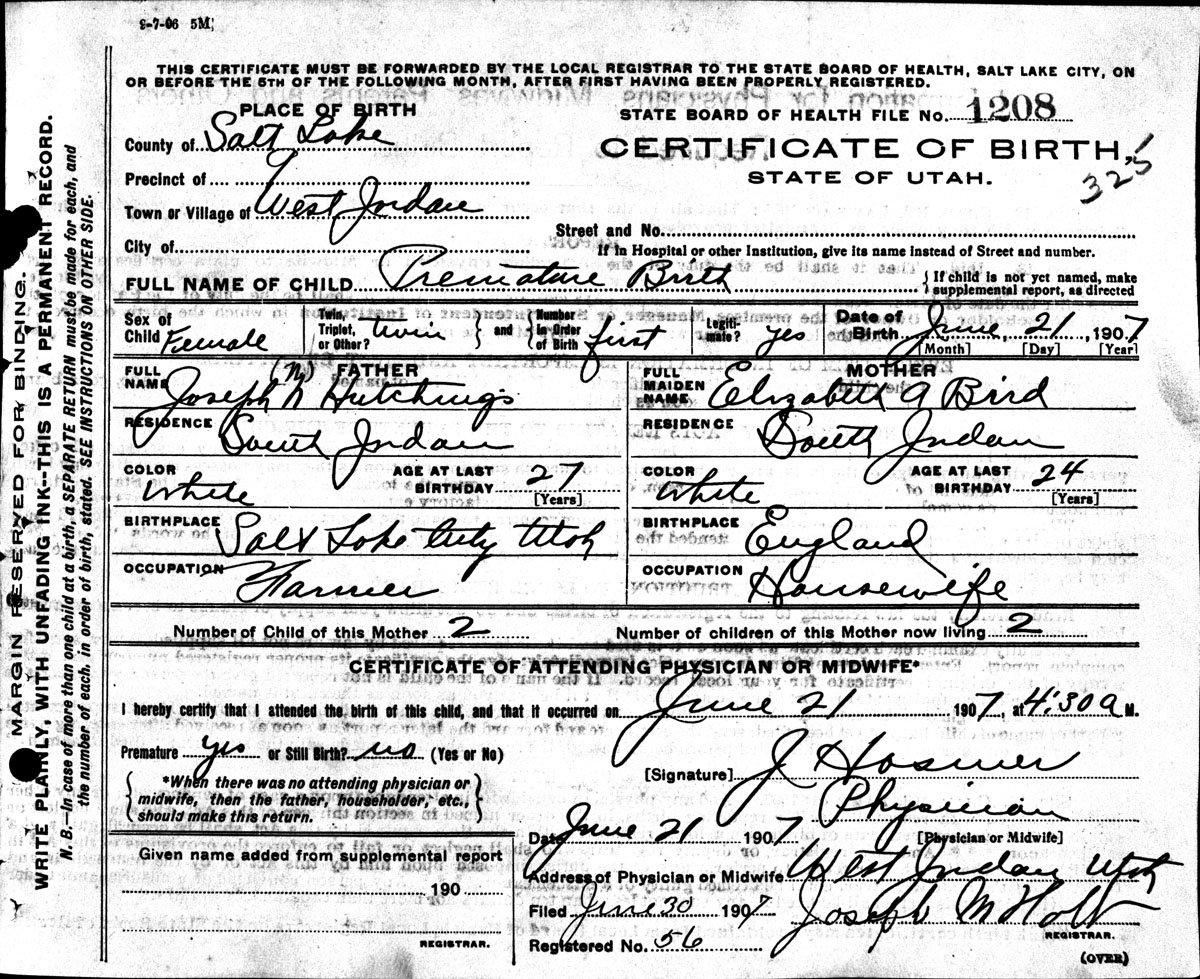 9-7-06 5M
THIS CERTIFICATE MUST BE FORWARDED BY THE LOCAL REGISTRAR TO THE STATE BOARD OF HEALTH, SALT LAKE CITY, ON
OR BEFORE THE 5TH OF THE FOLLOWING MONTH, AFTER FIRST HAVING BEEN PROPERLY REGISTERED.
PLACE OF BIRTH
STATE BOARD OF HEALTH FILE No. 1208
County of Salt Lake
CERTIFICATE OF BIRTH,
325
STATE OF UTAH.
Precinct of
Town or Village of West Jordan
Street and No.
City of
If in Hospital or other Institution, give its name instead of Street and number.
FULL NAME OF CHILD Premature Birth
{If child is not yet named, make
supplemental report, as directed
Sex of Child Female
Twin, Triplet, or Other? twin } and { Number in Order of Birth first
Legitimate? yes
Date of Birth June 21, 1907
[Month] [Day] [Year]
FATHER
FULL NAME Joseph N Hutchings
(N)
MOTHER
FULL MAIDEN NAME Elizabeth A Bird
RESIDENCE South Jordan
RESIDENCE South Jordan
COLOR White AGE AT LAST BIRTHDAY 27 [Years]
COLOR White AGE AT LAST BIRTHDAY 24 [Years]
BIRTHPLACE Salt Lake City Utah
BIRTHPLACE England
OCCUPATION Farmer
OCCUPATION Housewife
Number of Child of this Mother 2
Number of children of this Mother now living 2
CERTIFICATE OF ATTENDING PHYSICIAN OR MIDWIFE*
I hereby certify that I attended the birth of this child, and that it occurred on June 21 1907, at 4:30 a M.
Premature yes or Still Birth? no (Yes or No)
[Signature] J Hosmer
Physician
[Physician or Midwife]
{*When there was no attending physician or
midwife, then the father, householder, etc.,
should make this return.}
Date June 21 1907
Given name added from supplemental report
190
REGISTRAR.
Address of Physician or Midwife West Jordan Utah
Filed June 30 1907 Joseph M Holt
REGISTRAR.
Registered No. 56
(OVER)
MARGIN RESERVED FOR BINDING.
WRITE PLAINLY, WITH UNFADING INK--THIS IS A PERMANENT RECORD.
N. B.—In case of more than one child at a birth, a SEPARATE RETURN must be made for each, and
the number of each, in order of birth, stated. SEE INSTRUCTIONS ON OTHER SIDE.